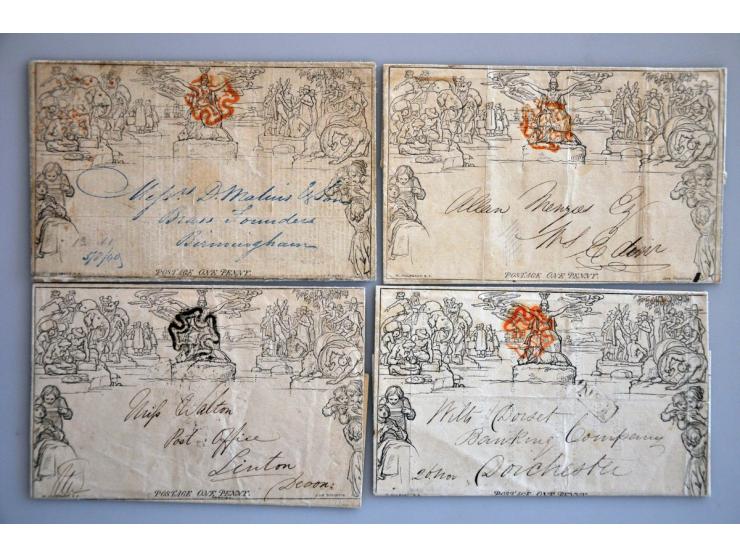 Messrs D. Malins & Son
Brass Founders
Birmingham
POSTAGE ONE PENNY.
Allan Menzies Esq
WS Edinr
POSTAGE ONE PENNY.
Miss Walton
Post Office
Linton
Devon
POSTAGE ONE PENNY.
Wilts Dorset
Banking Company
Dorchester
POSTAGE ONE PENNY.